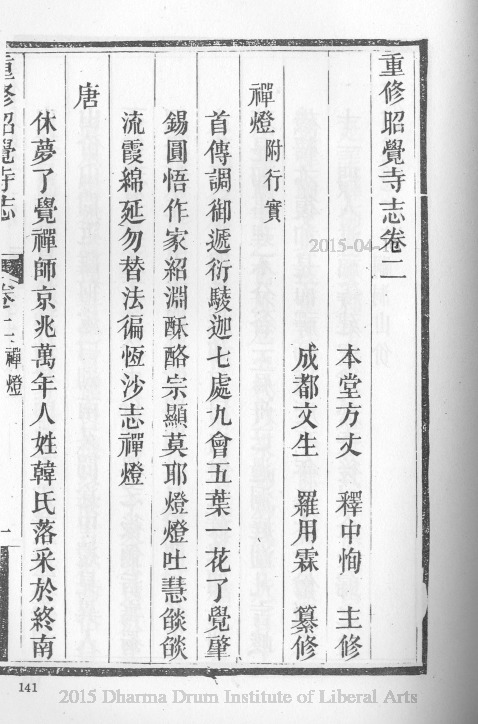 重修昭覺寺志卷二
本堂方丈 釋中恂 主修
成都文生 羅用霖 纂修
禪燈附行實
首傳調御遞衍駿迦七處九會五葉一花了覺肇
錫圓悟作家紹淵酥酪宗顯莫耶燈燈吐慧燄燄
流霞綿延勿替法徧恆沙志禪燈
唐
休夢了覺禪師京兆萬年人姓韓氏落采於終南
重修昭覺寺志
卷二 禪燈
一
141
2015-04-
2015 Dharma Drum Institute of Liberal Arts